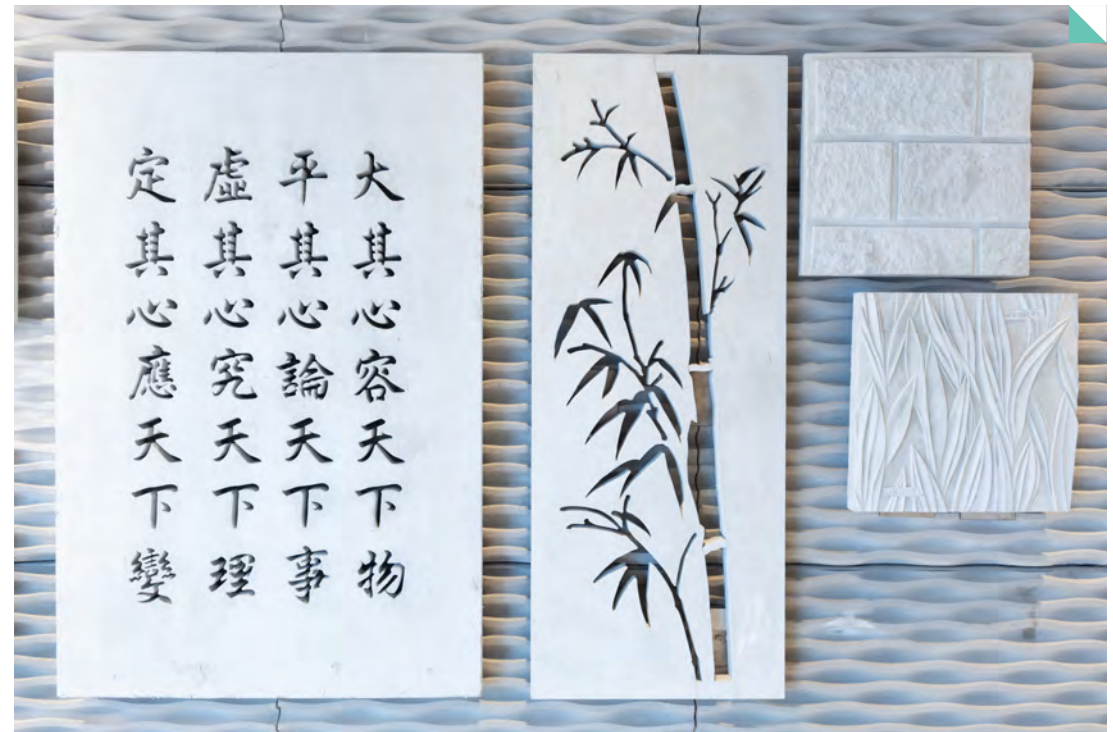 大其心容天下物
平其心論天下事
虛其心究天下理
定其心應天下變